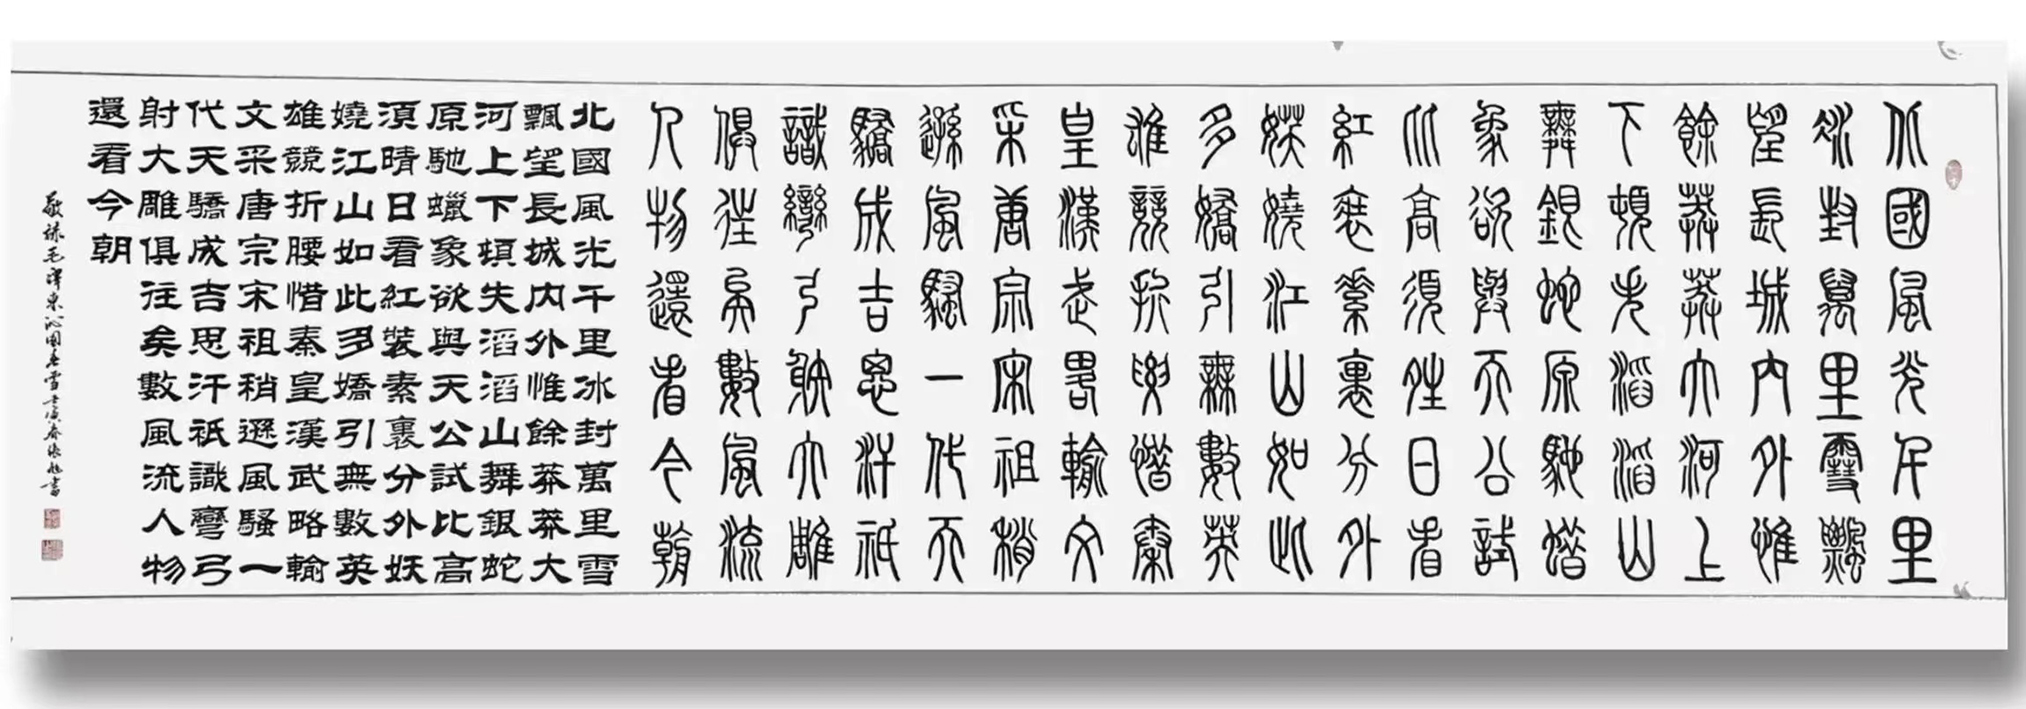 北國風光千里
冰封萬里雪飄
望長城內外惟
餘莽莽大河上
下頓失滔滔山
舞銀蛇原馳蠟
象欲與天公試
比高須晴日看
紅裝素裹分外
妖嬈江山如此
多嬌引無數英
雄競折腰惜秦
皇漢武略輸文
采唐宗宋祖稍
遜風騷一代天
驕成吉思汗祇
識彎弓射大雕
俱往矣數風流
人物還看今朝
北國風光千里冰封萬里雪
飄望長城內外惟餘莽莽大
河上下頓失滔滔山舞銀蛇
原馳蠟象欲與天公試比高
須晴日看紅裝素裹分外妖
嬈江山如此多嬌引無數英
雄競折腰惜秦皇漢武略輸
文采唐宗宋祖稍遜風騷一
代天驕成吉思汗祇識彎弓
射大雕俱往矣數風流人物
還看今朝
敬錄毛澤東沁園春雪壬寅春張旭書